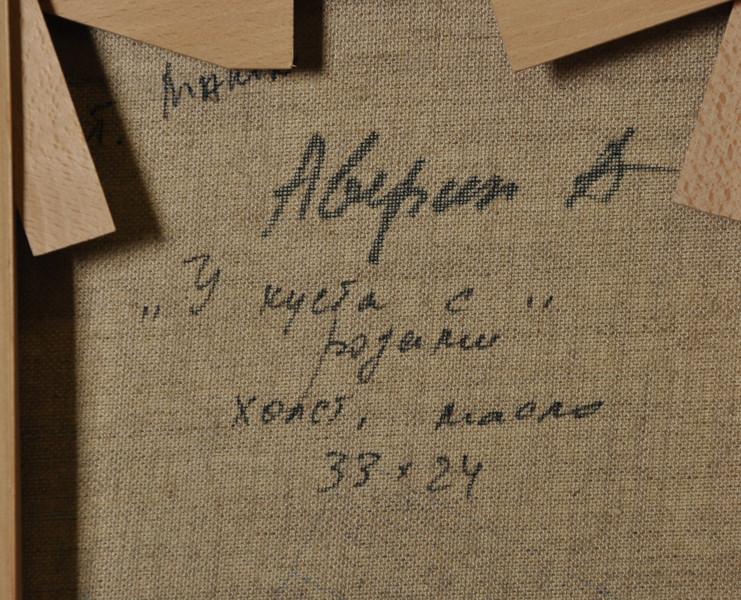 Аверин Д
„У куста с "
розами
холст, масло
33 x 24